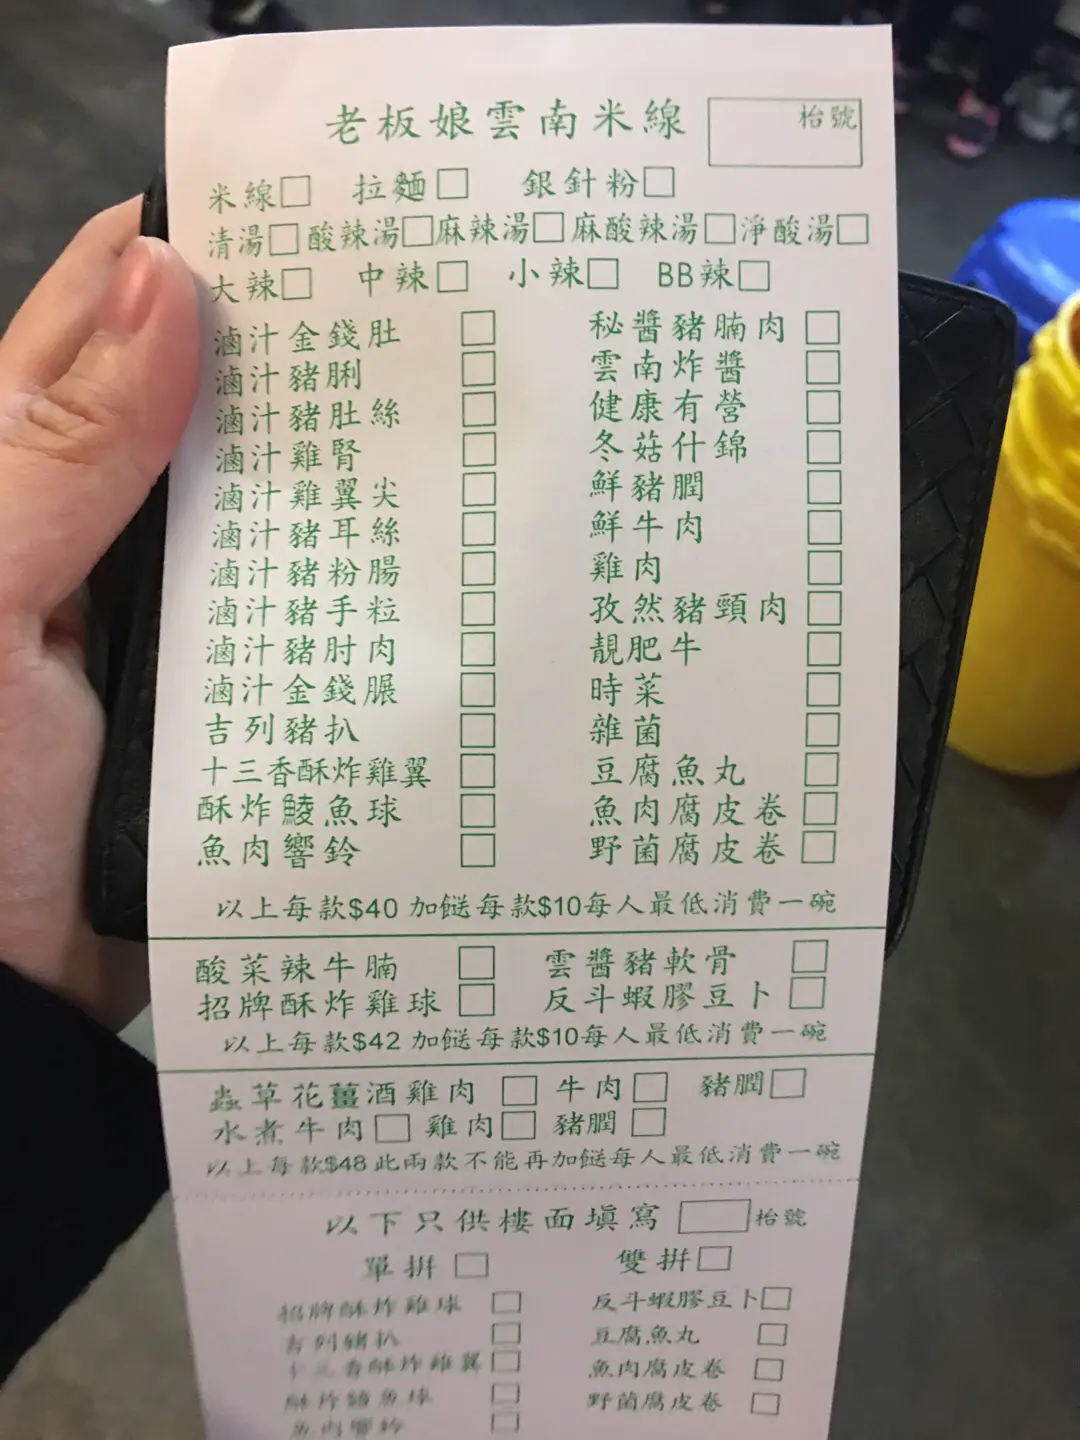 老板娘雲南米線 枱號
米線□ 拉麵□ 銀針粉□
清湯□ 酸辣湯□ 麻辣湯□ 麻酸辣湯□ 淨酸湯□
大辣□ 中辣□ 小辣□ BB辣□
滷汁金錢肚 □ 秘醬豬腩肉 □
滷汁豬脷 □ 雲南炸醬 □
滷汁豬肚絲 □ 健康有營 □
滷汁雞腎 □ 冬菇什錦 □
滷汁雞翼尖 □ 鮮豬膶 □
滷汁豬耳絲 □ 鮮牛肉 □
滷汁豬粉腸 □ 雞肉 □
滷汁豬手粒 □ 孜然豬頸肉 □
滷汁豬肘肉 □ 靚肥牛 □
滷汁金錢𦟌 □ 時菜 □
吉列豬扒 □ 雜菌 □
十三香酥炸雞翼 □ 豆腐魚丸 □
酥炸鯪魚球 □ 魚肉腐皮卷 □
魚肉響鈴 □ 野菌腐皮卷 □
以上每款$40 加餸每款$10每人最低消費一碗
酸菜辣牛腩 □ 雲醬豬軟骨 □
招牌酥炸雞球 □ 反斗蝦膠豆卜 □
以上每款$42 加餸每款$10每人最低消費一碗
蟲草花薑酒雞肉 □ 牛肉□ 豬膶□
水煮牛肉□ 雞肉□ 豬膶□
以上每款$48此兩款不能再加餸每人最低消費一碗
以下只供樓面填寫 □ 枱號
單拼 □ 雙拼□
招牌酥炸雞球 □ 反斗蝦膠豆卜□
吉列豬扒 □ 豆腐魚丸 □
十三香酥炸雞翼 □ 魚肉腐皮卷 □
酥炸鯪魚球 □ 野菌腐皮卷 □
魚肉響鈴 □